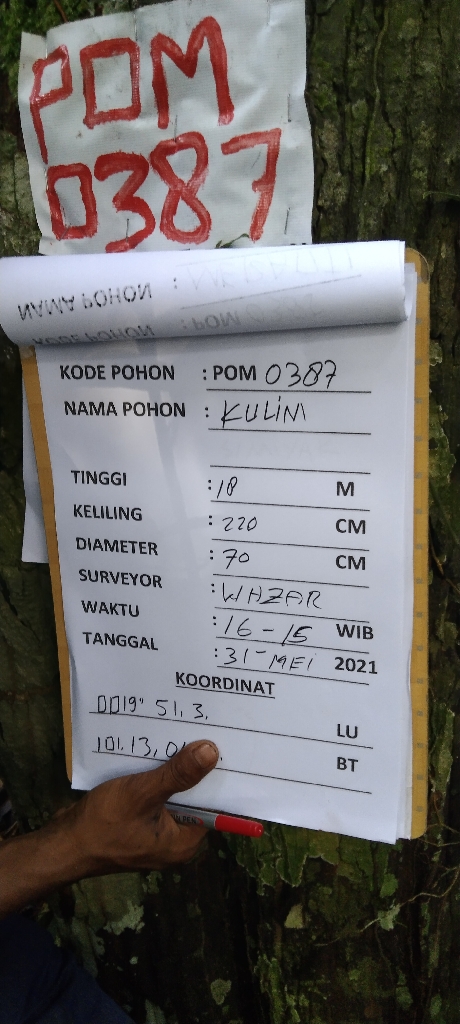 POM
0387
NAMA POHON :
KODE POHON : POM
KODE POHON : POM 0387
NAMA POHON : KULIM
TINGGI : 18 M
KELILING : 220 CM
DIAMETER : 70 CM
SURVEYOR : WAZAR
WAKTU : 16-15 WIB
TANGGAL : 31-MEI 2021
KOORDINAT
0019" 51.3. LU
101.13, BT